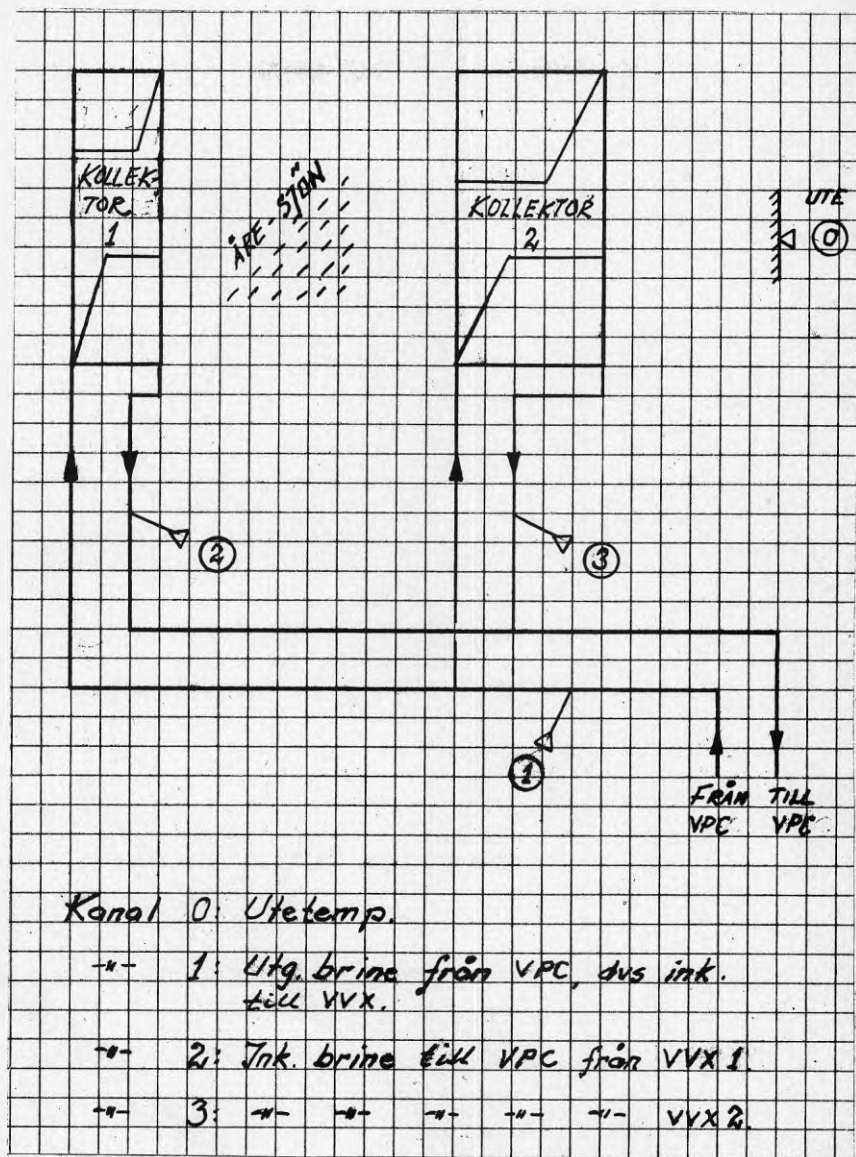 KOLLEK-
TOR
1
ÅRE SJÖN
KOLLEKTOR
2
UTE
0
2
3
1
FRÅN
VPC
TILL
VPC
Kanal 0: Utetemp.
-"- 1: Utg. brine från VPC, dvs ink.
till VVX.
-"- 2: Ink. brine till VPC från VVX 1.
-"- 3: -"- -"- -"- -"- -"- VVX 2.